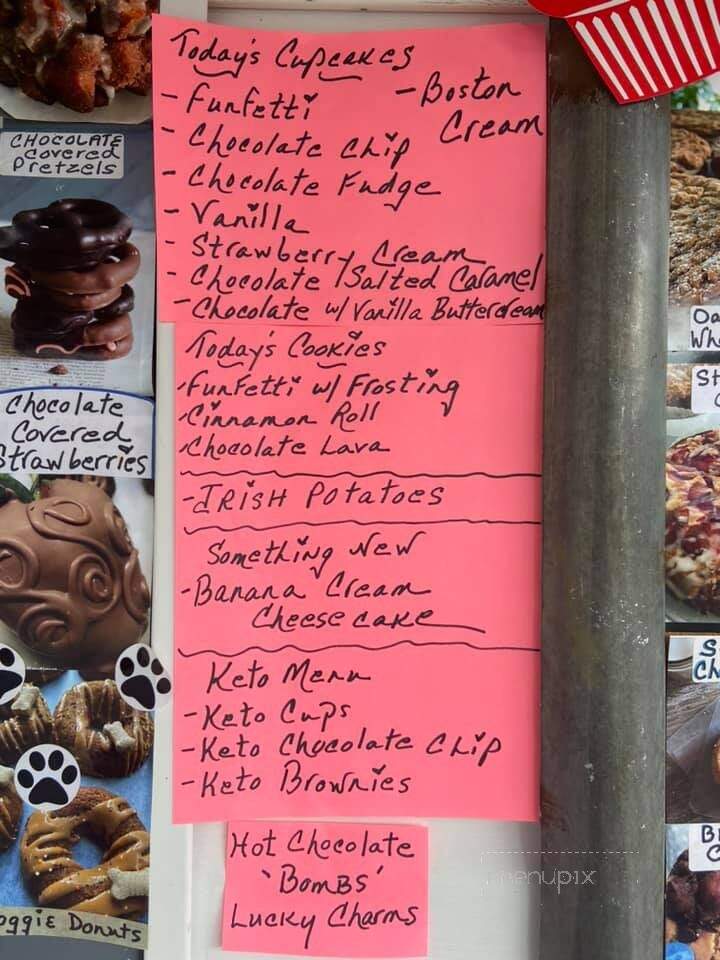 CHOCOLATE
covered
pretzels
Chocolate
Covered
Strawberries
Doggie Donuts
Today's Cupcakes
- Funfetti
- Boston
Cream
- Chocolate Chip
- Chocolate Fudge
- Vanilla
- Strawberry Cream
- Chocolate / Salted Caramel
- Chocolate w/ Vanilla Buttercream
Today's Cookies
- Funfetti w/ Frosting
- Cinnamon Roll
- Chocolate Lava
- IRISH Potatoes
Something New
- Banana Cream
Cheesecake
Keto Menu
- Keto Cups
- Keto Chocolate Chip
- Keto Brownies
Hot Chocolate
'Bombs'
Lucky Charms
menupix